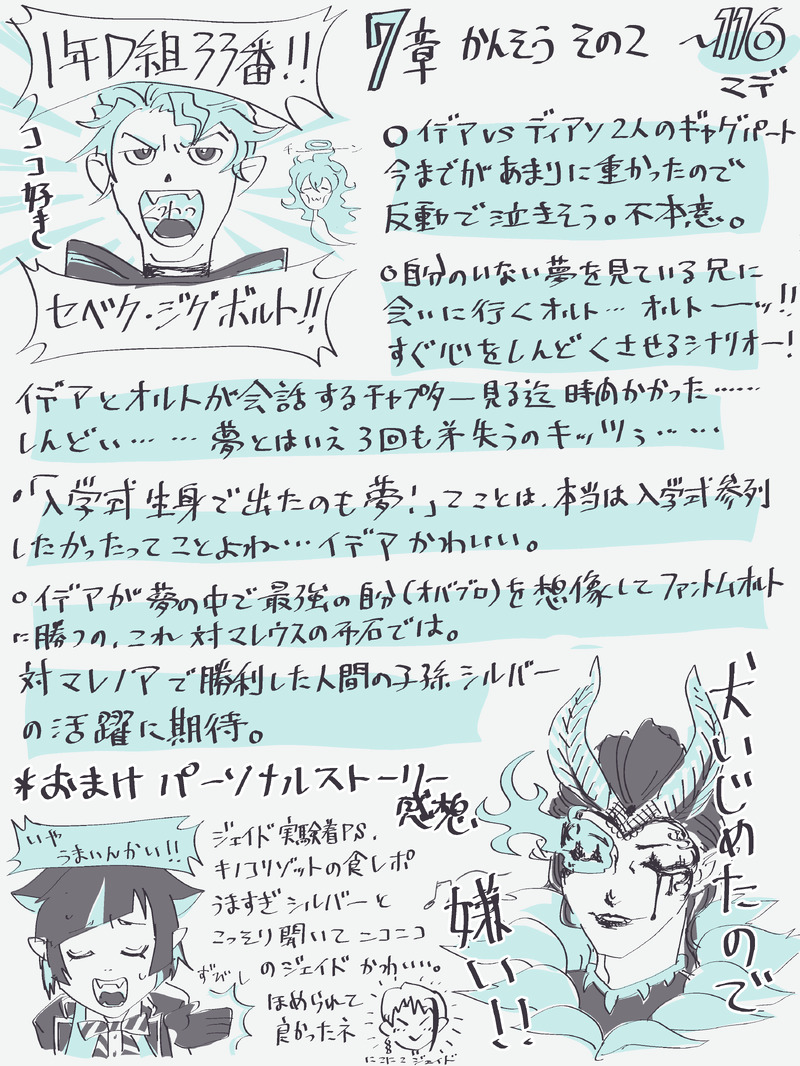 1年D組33番!!
ココ好き
うわっ
チーーン
セベク・ジグボルト!!
7章 かんそう その2 〜116
マデ
○イデアvsディアソ2人のギャグパート
今までがあまりに重かったので
反動で泣きそう。不本意。
○自分のいない夢を見ている兄に
会いに行くオルト… オルトーーッ!!
すぐ心をしんどくさせるシナリオー!
イデアとオルトが会話するチャプター見る迄 時間かかった……
しんどい…… 夢とはいえ3回も弟失うのキッツぅ……
・「入学式生身で出たのも夢!」てことは、本当は入学式参列
したかったってことよね…イデアかわいい。
○イデアが夢の中で最強の自分(オバブロ)を想像してファントムオルト
に勝つの、これ対マレウスの布石では。
対マレノアで勝利した人間の子孫シルバー
の活躍に期待。
*おまけ パーソナルストーリー
感想、
いや
うまいんかい!!
ずびし
ジェイド実験着PS、
キノコリゾットの食レポ
うますぎシルバーと
こっそり聞いてニコニコ
のジェイドかわいい。
ほめられて
良かったネ
にこにこジェイド
犬いじめたので
嫌い!!